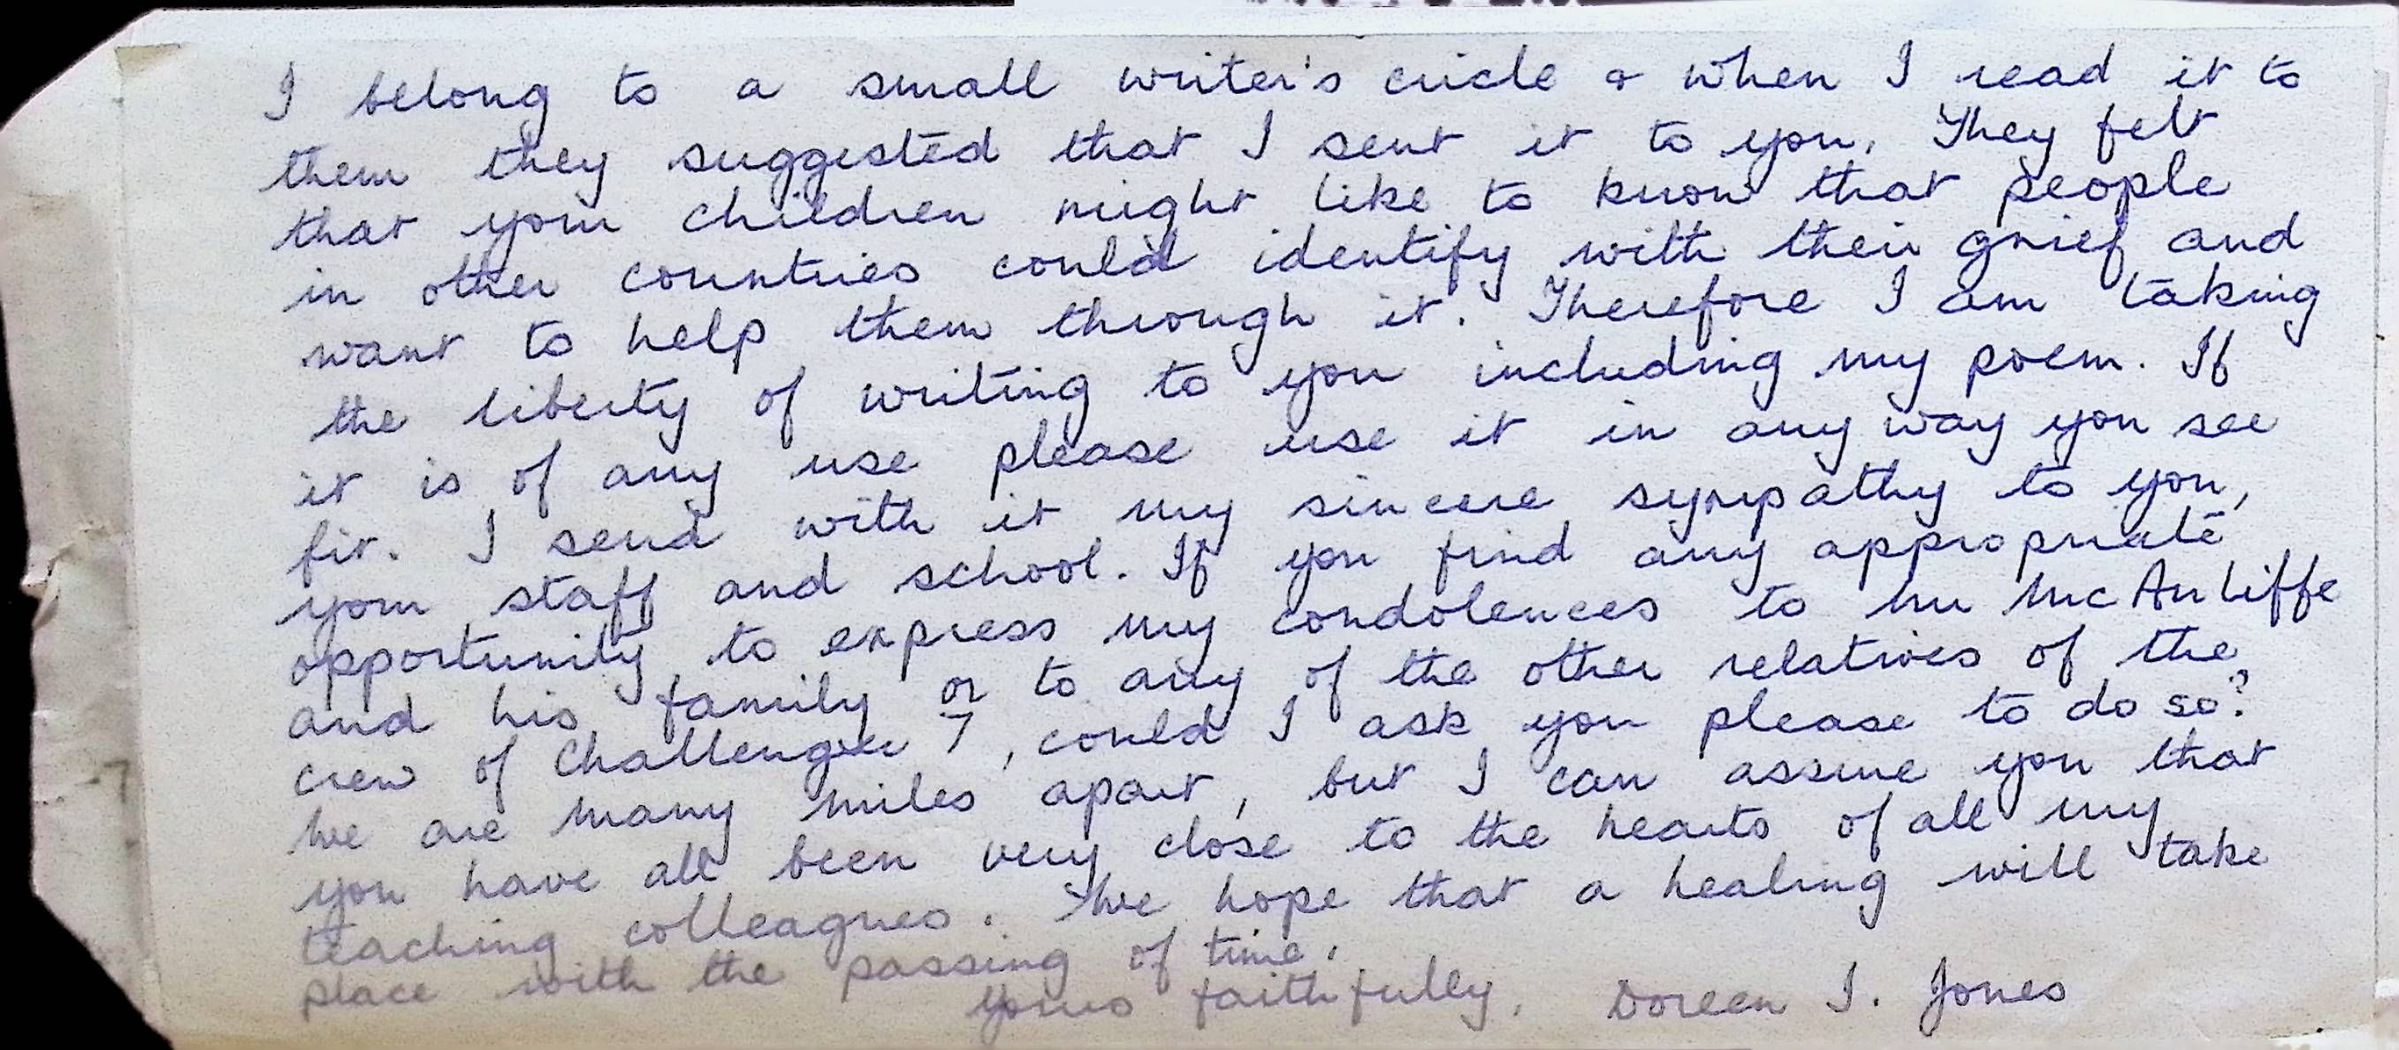 I belong to a small writer's circle & when I read it to
them they suggested that I sent it to you. They felt
that your children might like to know that people
in other countries could identify with their grief and
want to help them through it. Therefore I am taking
the liberty of writing to you including my poem. If
it is of any use please use it in any way you see
fit. I send with it my sincere sympathy to you,
your staff and school. If you find any appropriate
opportunity to express my condolences to Mr McAuliffe
and his family or to any of the other relatives of the
crew of Challenger 7, could I ask you please to do so?
We are many miles apart, but I can assure you that
you have all been very close to the hearts of all my
teaching colleagues. We hope that a healing will take
place with the passing of time.
Yours faithfully, Doreen I. Jones